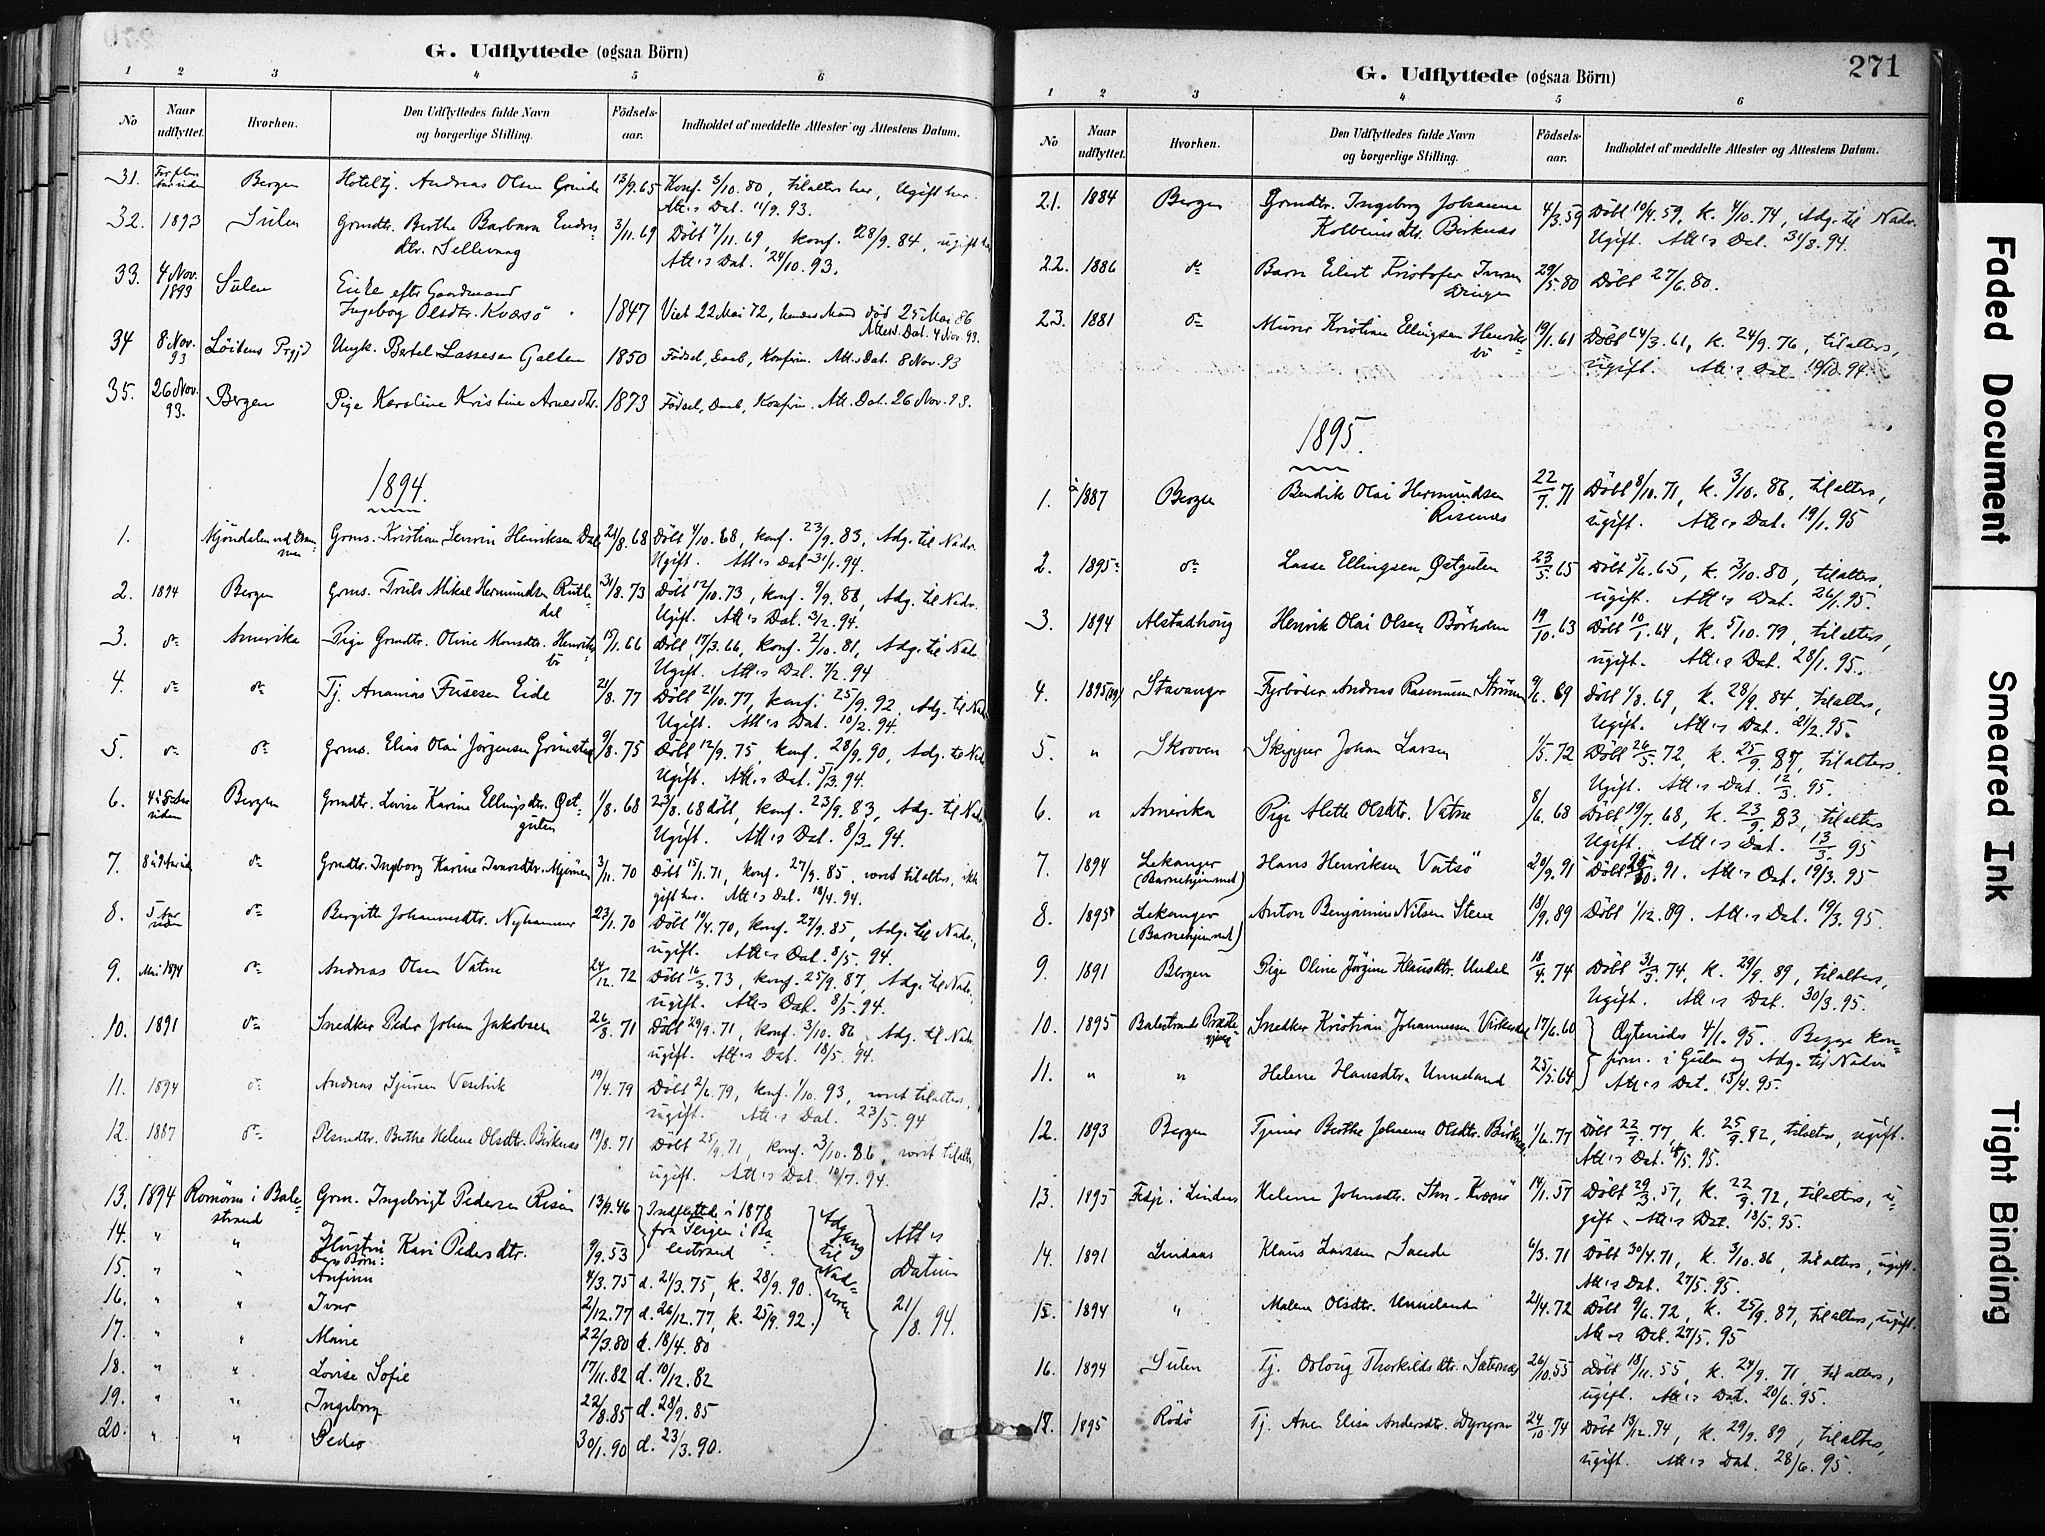 G. Udflyttede (ogsaa Börn)
1 2 3 4 5 6
No Naar udflyttet. Hvorhen. Den Udflyttedes fulde Navn og borgerlige Stilling. Födsels-aar. Indholdet af meddelte Attester og Attestens Datum.
31. Bergen Hoteltj. Andreas Olsen Grinde 13/9.65 Konf. 3/10.80, til alters her, Ugift her.
Att.s Dat. 11/9.93.
32. 1893 Sulen Grmdtr. Berthe Barbara Endres- 3/11.69 Döbt 7/11.69, konf. 28/9.84, ugift
dtr. Sellevaag Att.s Dat. 24/10.93.
33. 4 Nov. 1893 Sulen Enke efter Gaardmand
Ingeborg Olsdtr. Kvæsö 1847 Viet 22 Mai 72, hendes Mand död 25 Mai 86
Attest. Dat. 4 Nov. 93.
34 8 Nov. 93 Löitens Prgjd Ungk. Bertel Lassesen Galten 1850 Födsel, Daab, Konfirm. Att.s Dat. 8 Nov. 93
35. 26 Nov. 93. Bergen Pige Karoline Kristine Arnesdtr. 1873 Födsel, Daab, Konfirm. Att. Dat. 26 Nov. 93.
1894.
1. Mjöndalen ved Dram-
men Grms. Kristian Severin Henriksen Dale 21/8.68 Döbt 4/10.68, konf. 23/9.83, Adg. til Nadv.
Ugift. Att.s Dat 31/1.94.
2. 1894 Bergen Grms. Truls Mikal Hermundsen Rutle-
dal 31/8.73 Döbt 12/10.73, konf. 9/9.88, Adg. til Nadv.
Ugift. Att.s Dat. 3/2.94.
3. do Amerika Pige Grmdtr. Oline Monsdtr. Henriks-
bö 15/1.66 Döbt 17/3.66, konf. 2/10.81, Adg. til Nadv.
Ugift. Att.s Dat. 7/2.94
4. do do Tj. Ananias Fusesen Eide 21/8.77 Döbt 21/10.77, konf. 25/9.92, Adg. til Nadv
Ugift. Att.s Dat. 10/2.94.
5. do do Grms. Elias Olai Jörgensen Grimstad 9/8.75 Döbt 12/9.75, konf. 28/9.90, Adg. til Nadv.
Ugift. Att.s Dat. 5/3.94.
6. 4 à 5 Aar siden Bergen Grmdtr. Lovise Karine Ellingsdtr. Øst-
gulen 1/8.68 23/8.68 döbt, konf. 23/9.83, Adg. til Nadv.
Ugift. Att.s Dat. 8/3.94.
7. do Grmdtr. Ingeborg Karine Ivarsdtr. Mjömen 3/11.70 Döbt 15/1.71, konf. 27/9.85, været til alters, ikke
gift her. Att.s Dat. 18/4.94.
8. 5 Aar siden do Bergitte Johannesdtr. Nyhammer 23/1.70 Döbt 19/4.70, konf. 27/9.85, Adg. til Nadv.,
ugift. Att.s Dat. 8/5.94.
9. Mai 1894 do Andreas Olsen Vatne 24/12.72 Döbt 16/3.73, konf. 25/9.87, Adg. til Nadv.
ugift. Att.s Dat. 8/5.94.
10. 1891 do Snedker Peder Johan Jakobsen 26/8.71 Döbt 29/9.71, konf. 3/10.86, Adg. til Nadv.
ugift. Att.s Dat. 18/5.94.
11. 1894 do Andreas Sjursen Vesetvik 19/4.79 Döbt 2/6.79, konf. 1/10.93, været til alters,
ugift. Att.s Dat. 23/5.94
12. 1887 do Plsmdtr. Berthe Helene Olsdtr. Birknes 19/8.71 Döbt 25/9.71, konf. 3/10.86, været til alters
ugift. Att.s Dat. 10/7.94.
13. 1894 Romören i Bale-
strand Grm. Ingebrigt Pedersen Risen 13/9.46 Indflyttede i 1878
14. " " Hustru Kari Pedersdtr. 9/9.53 fra Teigen i Ba-
lestrand
Adgang til Nadveren
Att.s Datum 21/8.94.
15. " " Deres Börn: Anfinn 4/3.75 d. 21/3.75, k. 28/9.90.
16. " " Ivar 2/12.77 d. 26/12.77, k. 25/9.92.
17. " " Marie 22/3.80 d. 18/4.80
18. " " Lovise Sofie 17/11.82 d. 10/12.82
19. " " Ingeborg 22/8.85 d. 28/9.85
20. " " Peder 30/1.90 d. 23/3.90.
271
G. Udflyttede (ogsaa Börn)
1 2 3 4 5 6
No Naar udflyttet. Hvorhen. Den Udflyttedes fulde Navn og borgerlige Stilling. Födsels-aar. Indholdet af meddelte Attester og Attestens Datum.
21. 1884 Bergen Grmdtr. Ingeborg Johanne
Kolbeinsdtr. Birknes 4/3.59 Döbt 10/4.59, k. 4/10.74, Adg. til Nadv.
Ugift. Att.s Dat. 31/8.94.
22. 1886 do Barn Eilert Kristofer Iversen
Dingen 29/5.80 Döbt 27/6.80.
23. 1881 do Murer Kristian Ellingsen Henriks-
bö 19/1.61 Döbt 24/3.61, k. 24/9.76, til alters,
ugift. Att.s Dat. 19/10.94.
1895.
1. 1887 Bergen Bendik Olai Hermundsen
Risenes 22/7.71 Döbt 8/10.71, k. 3/10.86, til alters,
ugift. Att.s Dat. 19/1.95
2. 1895 do Lasse Ellingsen Østgulen 23/5.65 Döbt 5/6.65, k. 3/10.80, til alters,
ugift. Att.s Dat. 26/1.95.
3. 1894 Alstadhoug Henrik Olai Olsen Börholm 19/10.63 Döbt 10/1.64, k. 5/10.79, til alters,
ugift. Att.s Dat. 28/1.95.
4. 1895 Stavanger Fyrböder Andreas Rasmussen Strömmen 9/6.69 Döbt 1/8.69, k. 28/9.84, til alters,
Ugift. Att.s Dat. 21/2.95.
5. " Skroven Skipper Johan Larsen 1/5.72 Döbt 26/5.72, k. 25/9.87, til alters.
Ugift. Att.s Dat. 12/3.95.
6. " Amerika Pige Alette Olsdtr. Vatne 8/6.68 Döbt 19/7.68, k. 23/9.83, til alters
Ugift. Att.s Dat. 13/3.95
7. 1894 Lekanger
(Barnehjemmet) Hans Henriksen Vatsö 20/9.91 Döbt 25/10.91. Att.s Dat. 19/3.95
8. 1895 Lekanger
(Barnehjemmet) Anton Benjamin Nilsen Stene 18/9.89 Döbt 1/12.89. Att.s Dat. 19/3.95.
9. 1891 Bergen Pige Oline Jörgine Klausdtr. Undal 18/4.74 Döbt 31/3.74, k. 29/9.89, til alters,
Ugift. Att.s Dat. 30/3.95.
10. 1895 Balestrands Præste-
gjeld Snedker Kristian Johannessen Virkesdal 17/6.60 Ægteviede 4/1.95. Begge kon-
11. " " Helene Hansdtr. Unneland 25/5.64 firm. i Gulen og Adg. til Nadv.
Att.s Dat. 15/4.95.
12. 1893 Bergen Tjener Berthe Johanne Olsdtr. Birknes 1/6.77 Döbt 22/7.77, k. 25/9.92, til alters, ugift.
Att.s Dat. 18/5.95.
13. 1895 Fedje i Lindaas Helene Johnsdtr. Kværsö 14/1.57 Döbt 29/3.57, k. 22/9.72, til alters, u-
gift. Att.s Dat. 18/5.95.
14. 1891 Lindaas Klaus Larssen Sande 6/3.71 Döbt 30/4.71, k. 3/10.86, til alters, ugift.
Att.s Dat. 27/5.95.
15. 1894 " Malene Olsdtr. Unneland 21/4.72 Döbt 9/6.72, k. 25/9.87, til alters, ugift.
Att.s Dat. 27/5.95
16. 1894 Sulen Tj. Orloug Thorkildsdtr. Sæternes 26/10.55 Döbt 18/11.55, k. 24/9.71, til alters,
ugift. Att.s Dat. 20/6.95.
17. 1895 Rödö Tj. Ane Elisa Andersdtr. 24/10.74 Döbt 13/12.74, k. 29/9.89, til alters,
ugift. Att.s Dat. 28/6.95.
Faded Document
Smeared Ink
Tight Binding